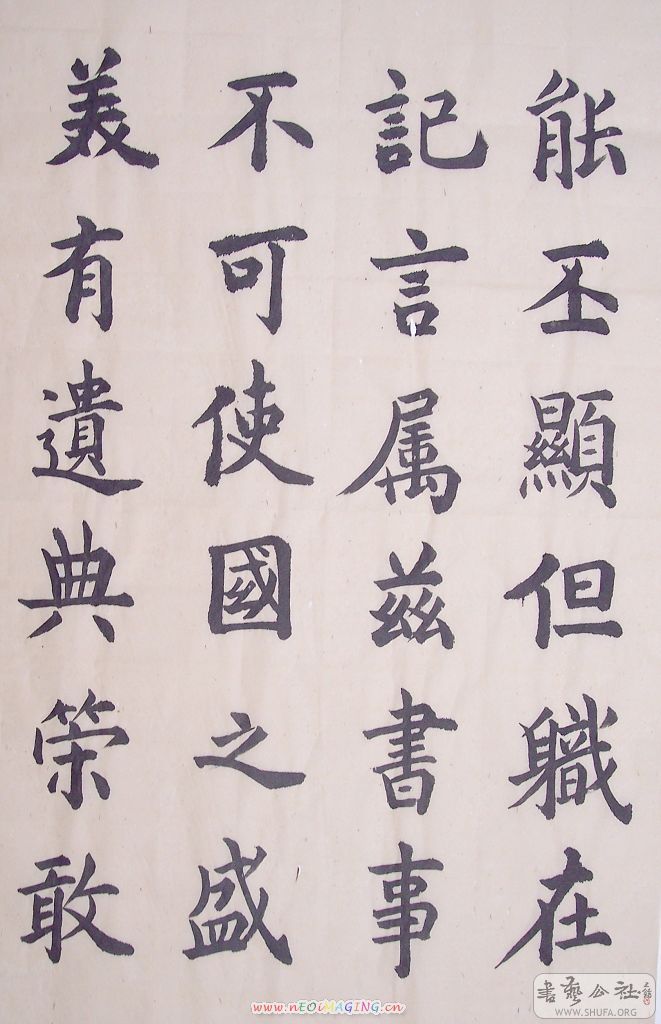 能丕顯但軄在
記言属茲書事
不可使國之盛
美有遺典策敢
書藝公社
WWW.SHUFA.ORG
www.nEOiMAGING.cn